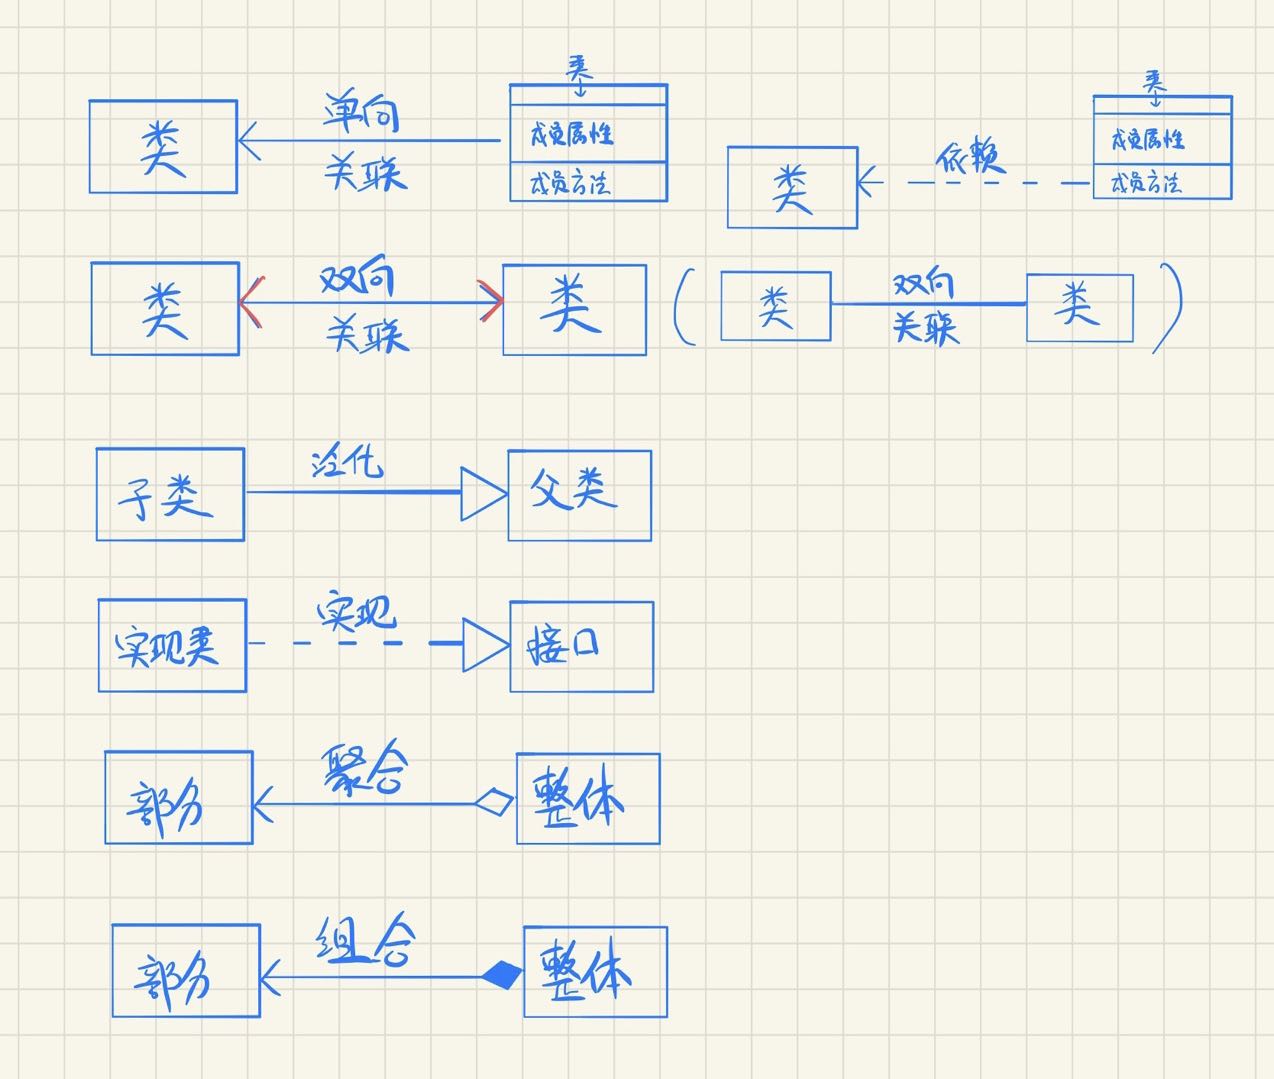 类
单向
关联
类
成员属性
成员方法
类
依赖
类
成员属性
成员方法
类
双向
关联
类
(
类
双向
关联
类
)
子类
泛化
父类
实现类
实现
接口
部分
聚合
整体
部分
组合
整体